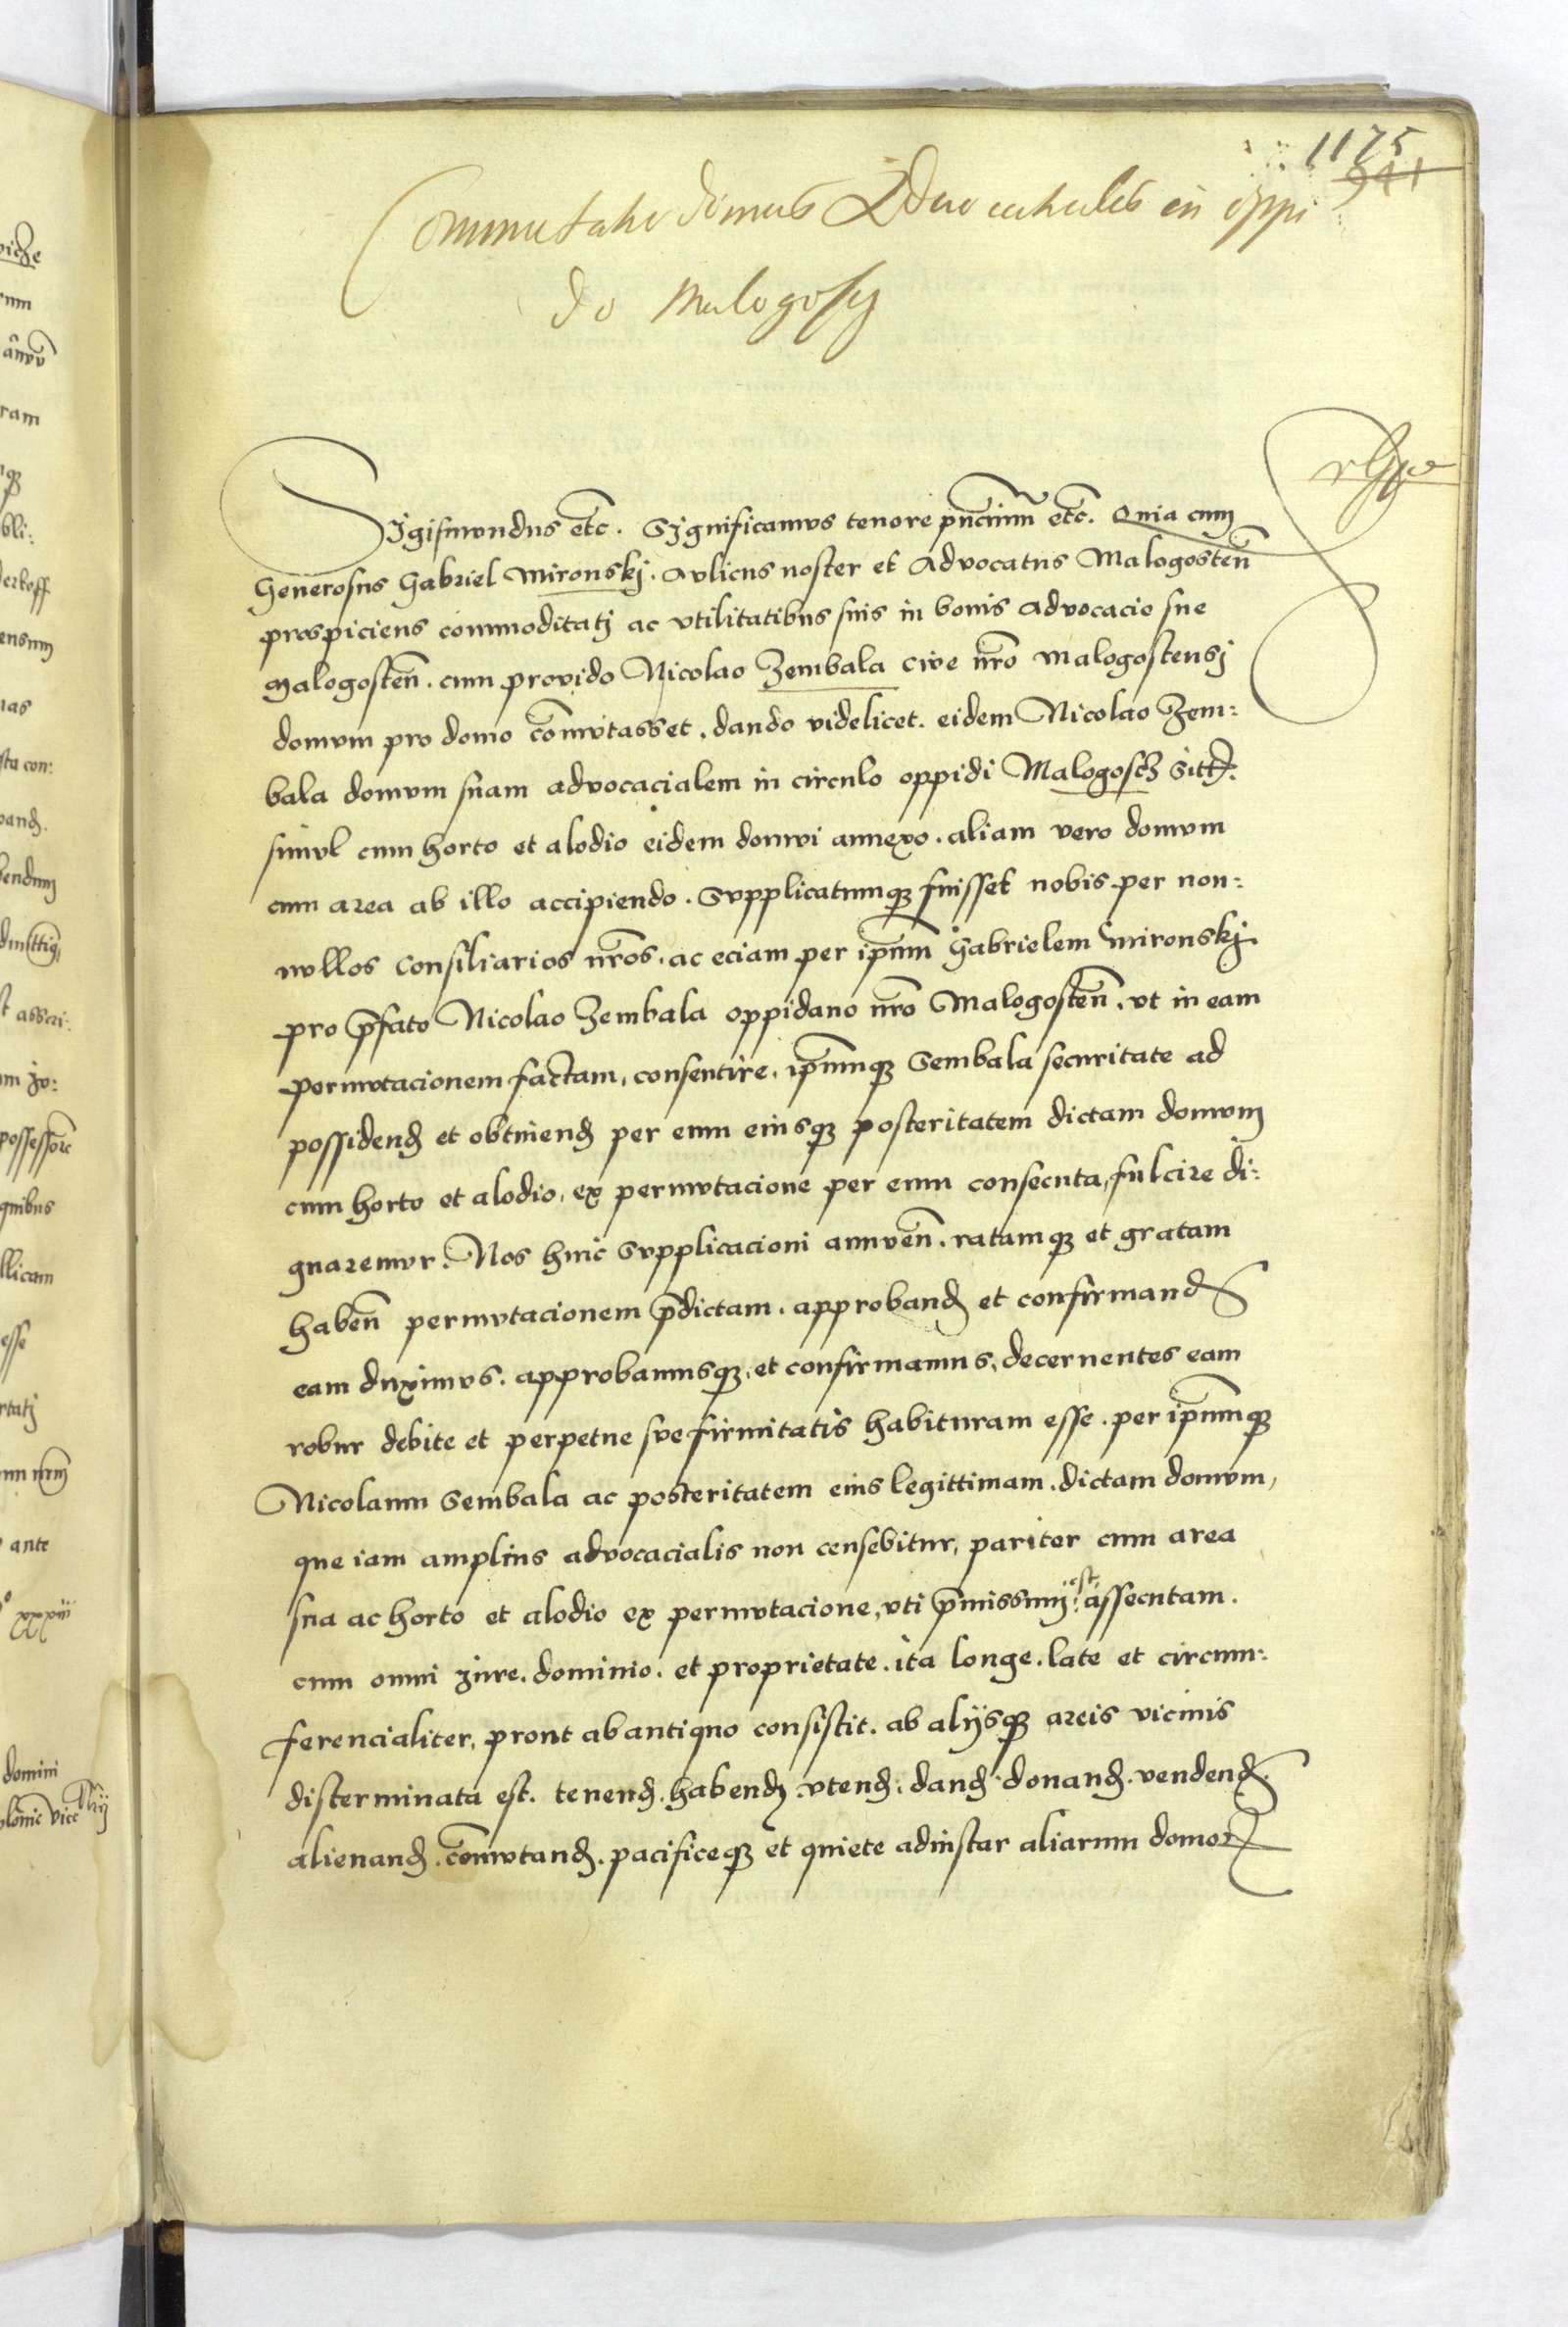 1175
941
Commutatio domus Advocatialis in oppi
do Malogosy
Sigismundus etc. Significamus tenore pñcium etc. Quia cum
Generosus Gabriel Mironskj. Aulicus noster et Advocatus Malogosteñ
prospiciens commoditatj ac vtilitatibus suis in bonis advocacie sue
Malogosteñ. cum provido Nicolao Zembala cive nr̃o Malogostensj
domum pro domo com̃utasset. dando videlicet. eidem Nicolao Zem:
bala domum suam advocacialem in circulo oppidi Malogoscz sitt̃.
simul cum horto et alodio eidem domui annexo. aliam vero domum
cum area ab illo accipiendo. Supplicatumqʒ fuisset nobis per non:
nullos consiliarios nr̃os. ac eciam per ip̃um Gabrielem Mironskj
pro p̃fato Nicolao Zembala oppidano nr̃o Malogosteñ. vt in eam
permutacionem factam, consentire. ip̃umqʒ Sembala securitate ad
possidenđ et obtinenđ per eum eiusqʒ posteritatem dictam domum
cum horto et alodio, ex permutacione per eum consecuta, fulcire di:
gnaremur. Nos huic supplicacioni annueñ. ratamqʒ et gratam
habeñ permutacionem p̃dictam. approbanđ et confirmanđ
eam duximus. approbamusqʒ, et confirmamus, decernentes eam
robur debite et perpetue sue firmitatis habituram esse. per ip̃umqʒ
Nicolaum Sembala ac posteritatem eius legittimam. dictam domum,
que iam amplius advocacialis non censebitur, pariter cum area
sua ac horto et alodio ex permutacione, vti p̃missum est assecutam.
cum omni jure. dominio. et proprietate. ita longe. late et circum:
ferencialiter, prout ab antiquo consistit. ab alijsqʒ areis vicinis
disterminata est. tenenđ. habenđ. vtenđ. danđ. donanđ. vendenđ.
alienanđ. com̃utanđ. pacificeqʒ et quiete adinstar aliarum domoꝝ